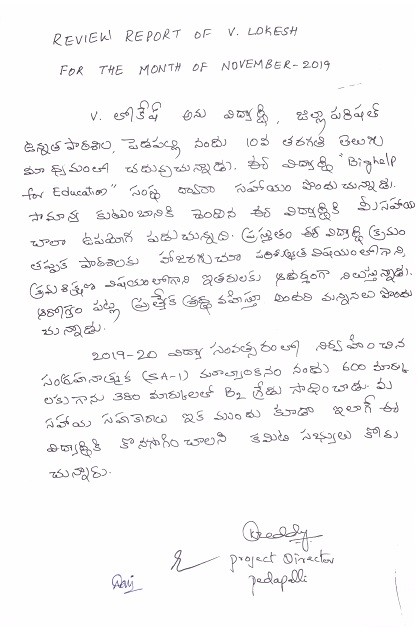 REVIEW REPORT OF V. LOKESH
FOR THE MONTH OF NOVEMBER-2019
V. లోకేష్ అను విద్యార్థి, జిల్లా పరిషత్
ఉన్నత పాఠశాల, పెదపల్లి నందు 10వ తరగతి తెలుగు
మాధ్యమంలో చదువుచున్నాడు. ఈ విద్యార్థి "Bighelp
for Education" సంస్థ ద్వారా సహాయం పొందుచున్నాడు.
సామాన్య కుటుంబానికి చెందిన ఈ విద్యార్థికి మీ సహాయం
చాలా ఉపయోగ పడుచున్నది. ప్రస్తుతం ఈ విద్యార్థి క్రమం
తప్పక పాఠశాలకు హాజరగుచూ పరిశుభ్రత విషయంలోగాని,
క్రమశిక్షణ విషయంలోగాని ఇతరులకు ఆదర్శంగా నిలుస్తున్నాడు.
ఆరోగ్యం పట్ల ప్రత్యేక శ్రద్ధ వహిస్తూ అందరి మన్ననలు పొందు
చున్నాడు.
2019-20 విద్యా సంవత్సరంలో నిర్వహించిన
సంగ్రహనాత్మక (SA-1) మూల్యాంకనం నందు 600 మార్కు
లకుగాను 380 మార్కులతో B2 గ్రేడు సాధించాడు. మీ
సహాయ సహకారాలు ఇక ముందు కూడా ఇలాగే ఈ
విద్యార్థికి కొనసాగించాలని కమిటి సభ్యులు కోరు
చున్నారు.
Project Director
pedapalli